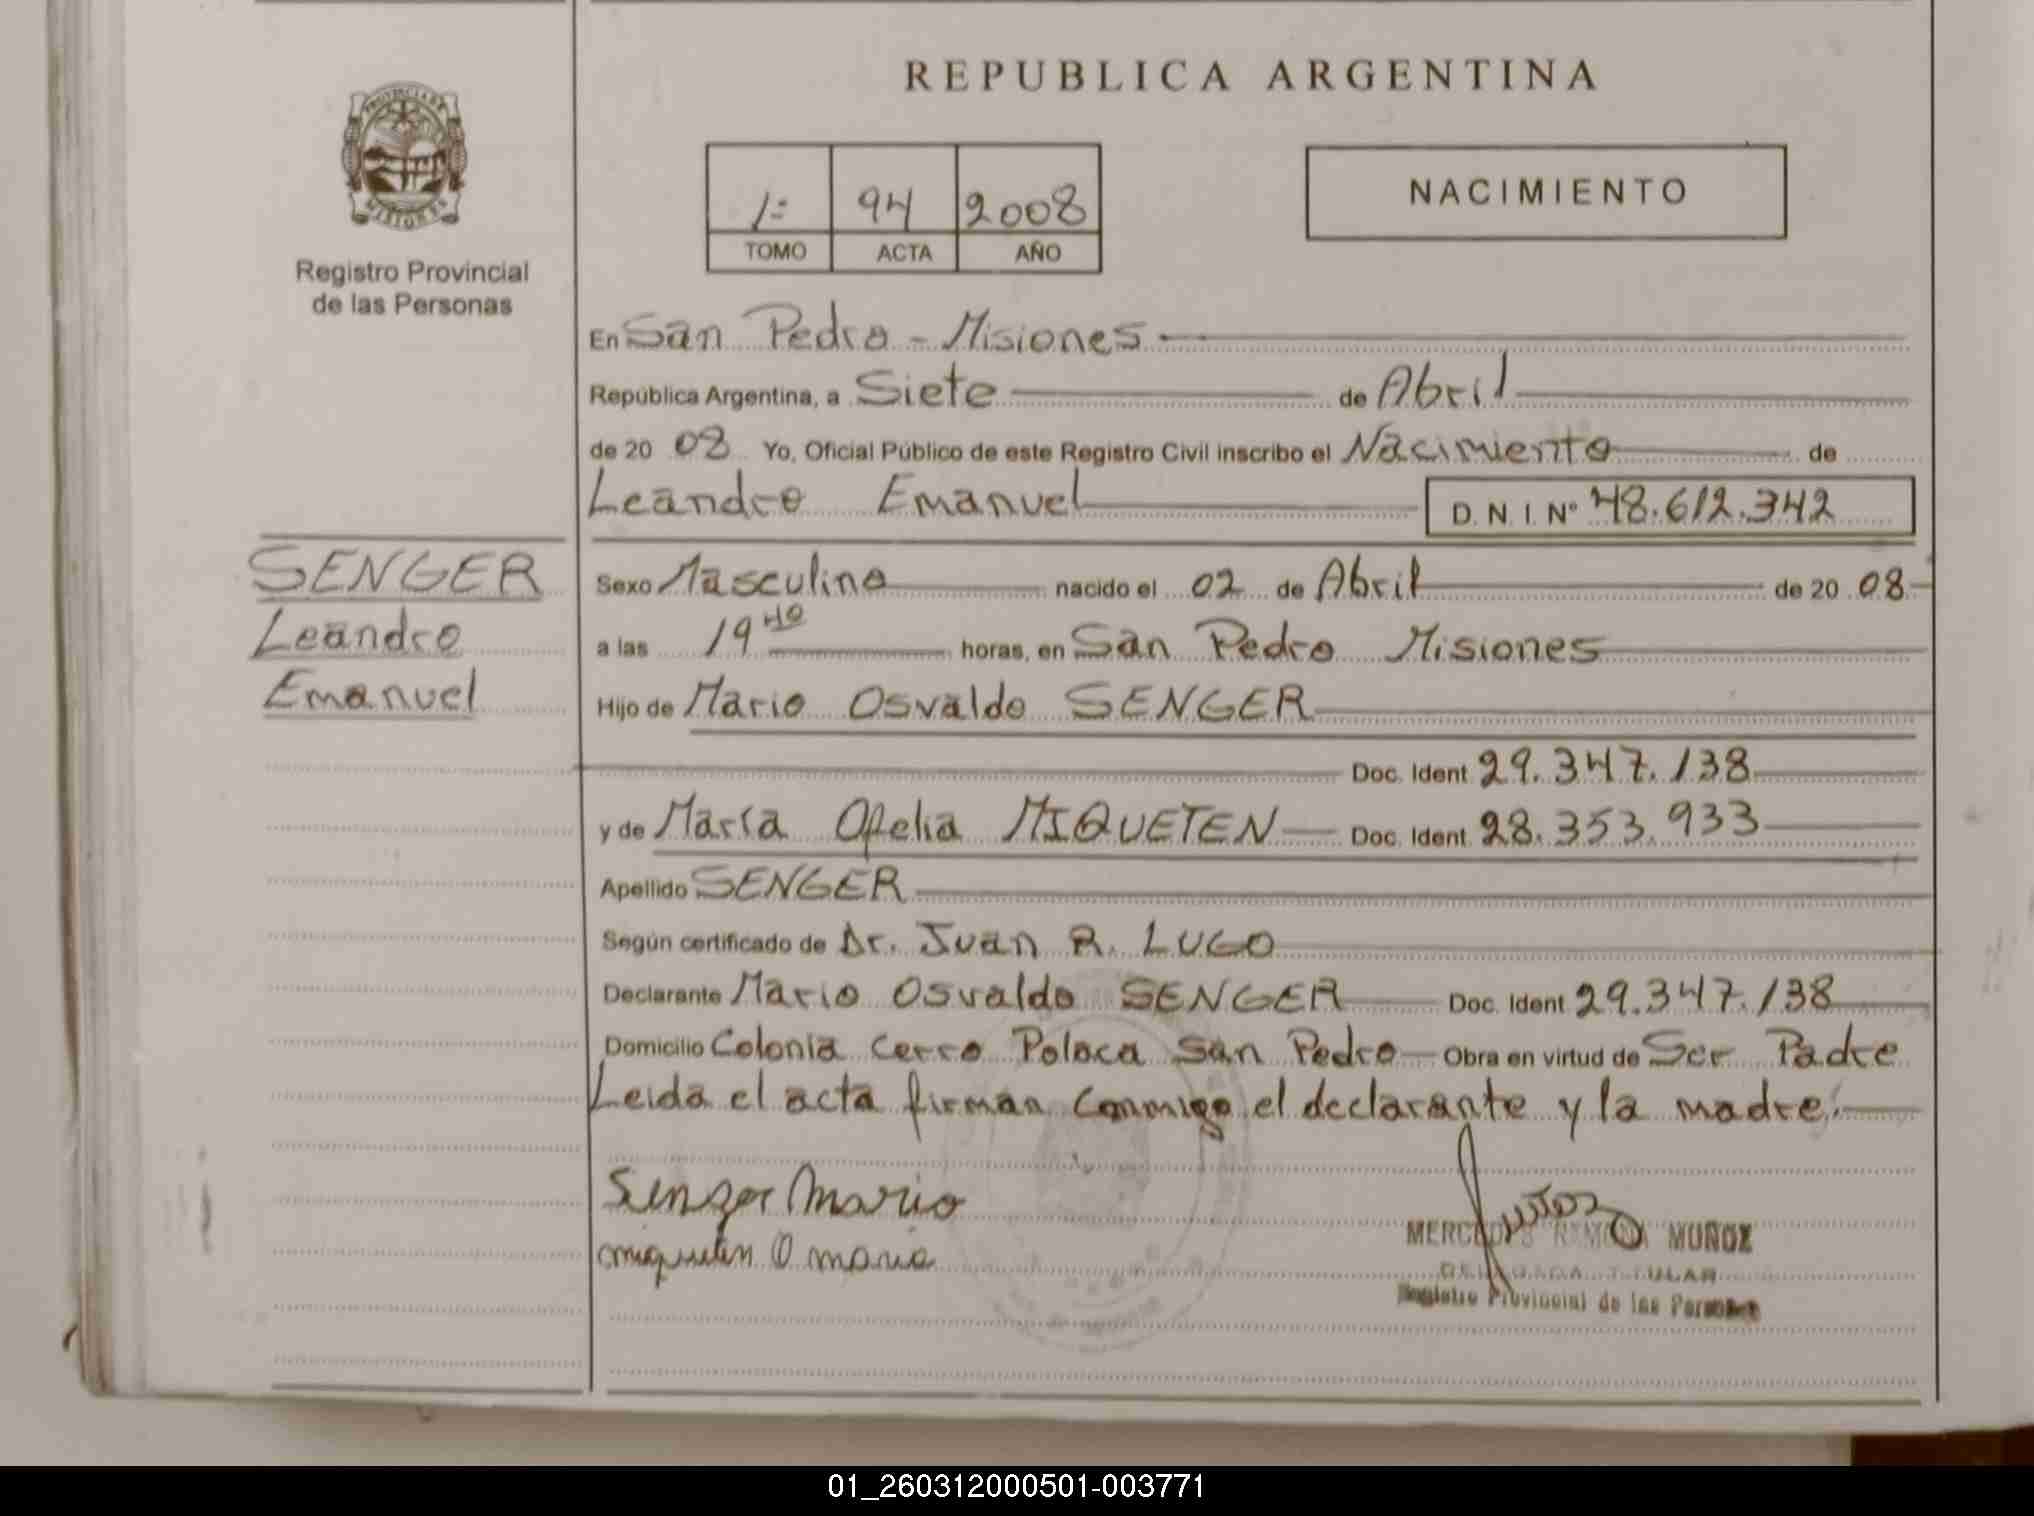 REPUBLICA ARGENTINA
PROVINCIA DE
MISIONES
Registro Provincial
de las Personas
1= 94 2008
TOMO ACTA AÑO
NACIMIENTO
En San Pedro - Misiones
República Argentina, a Siete de Abril
de 20 08 Yo, Oficial Público de este Registro Civil inscribo el Nacimiento de
Leandro Emanuel D. N. I. Nº 48.612.342
SENGER
Leandro
Emanuel
Sexo Masculino nacido el 02 de Abril de 20 08
a las 19 40 horas, en San Pedro Misiones
Hijo de Mario Osvaldo SENGER
Doc. Ident 29.347.138
y de María Ofelia MIQUETEN Doc. Ident 28.353.933
Apellido SENGER
Según certificado de Dr. Juan R. LUGO
Declarante Mario Osvaldo SENGER Doc. Ident 29.347.138
Domicilio Colonia Cerro Polaca San Pedro Obra en virtud de Ser Padre
Leida el acta firman conmigo el declarante y la madre.
Senger Mario
miqueten O maria
MUÑOZ
TITULAR
Registro Provincial de las Personas
01_260312000501-003771